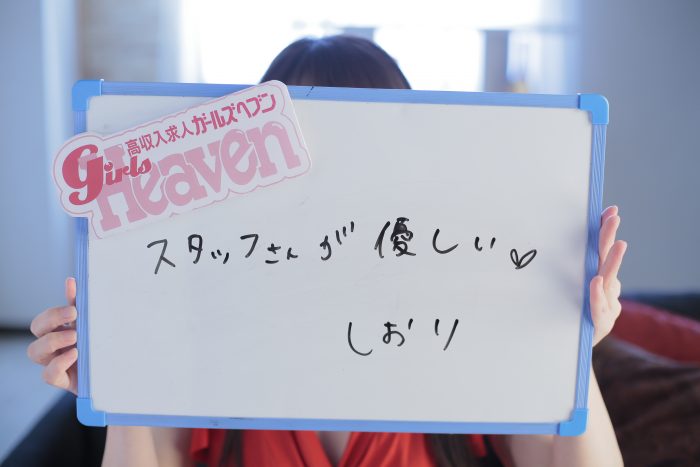 高収入求人ガールズヘブン
Girls
Heaven
スタッフさんが優しい♡
しおり